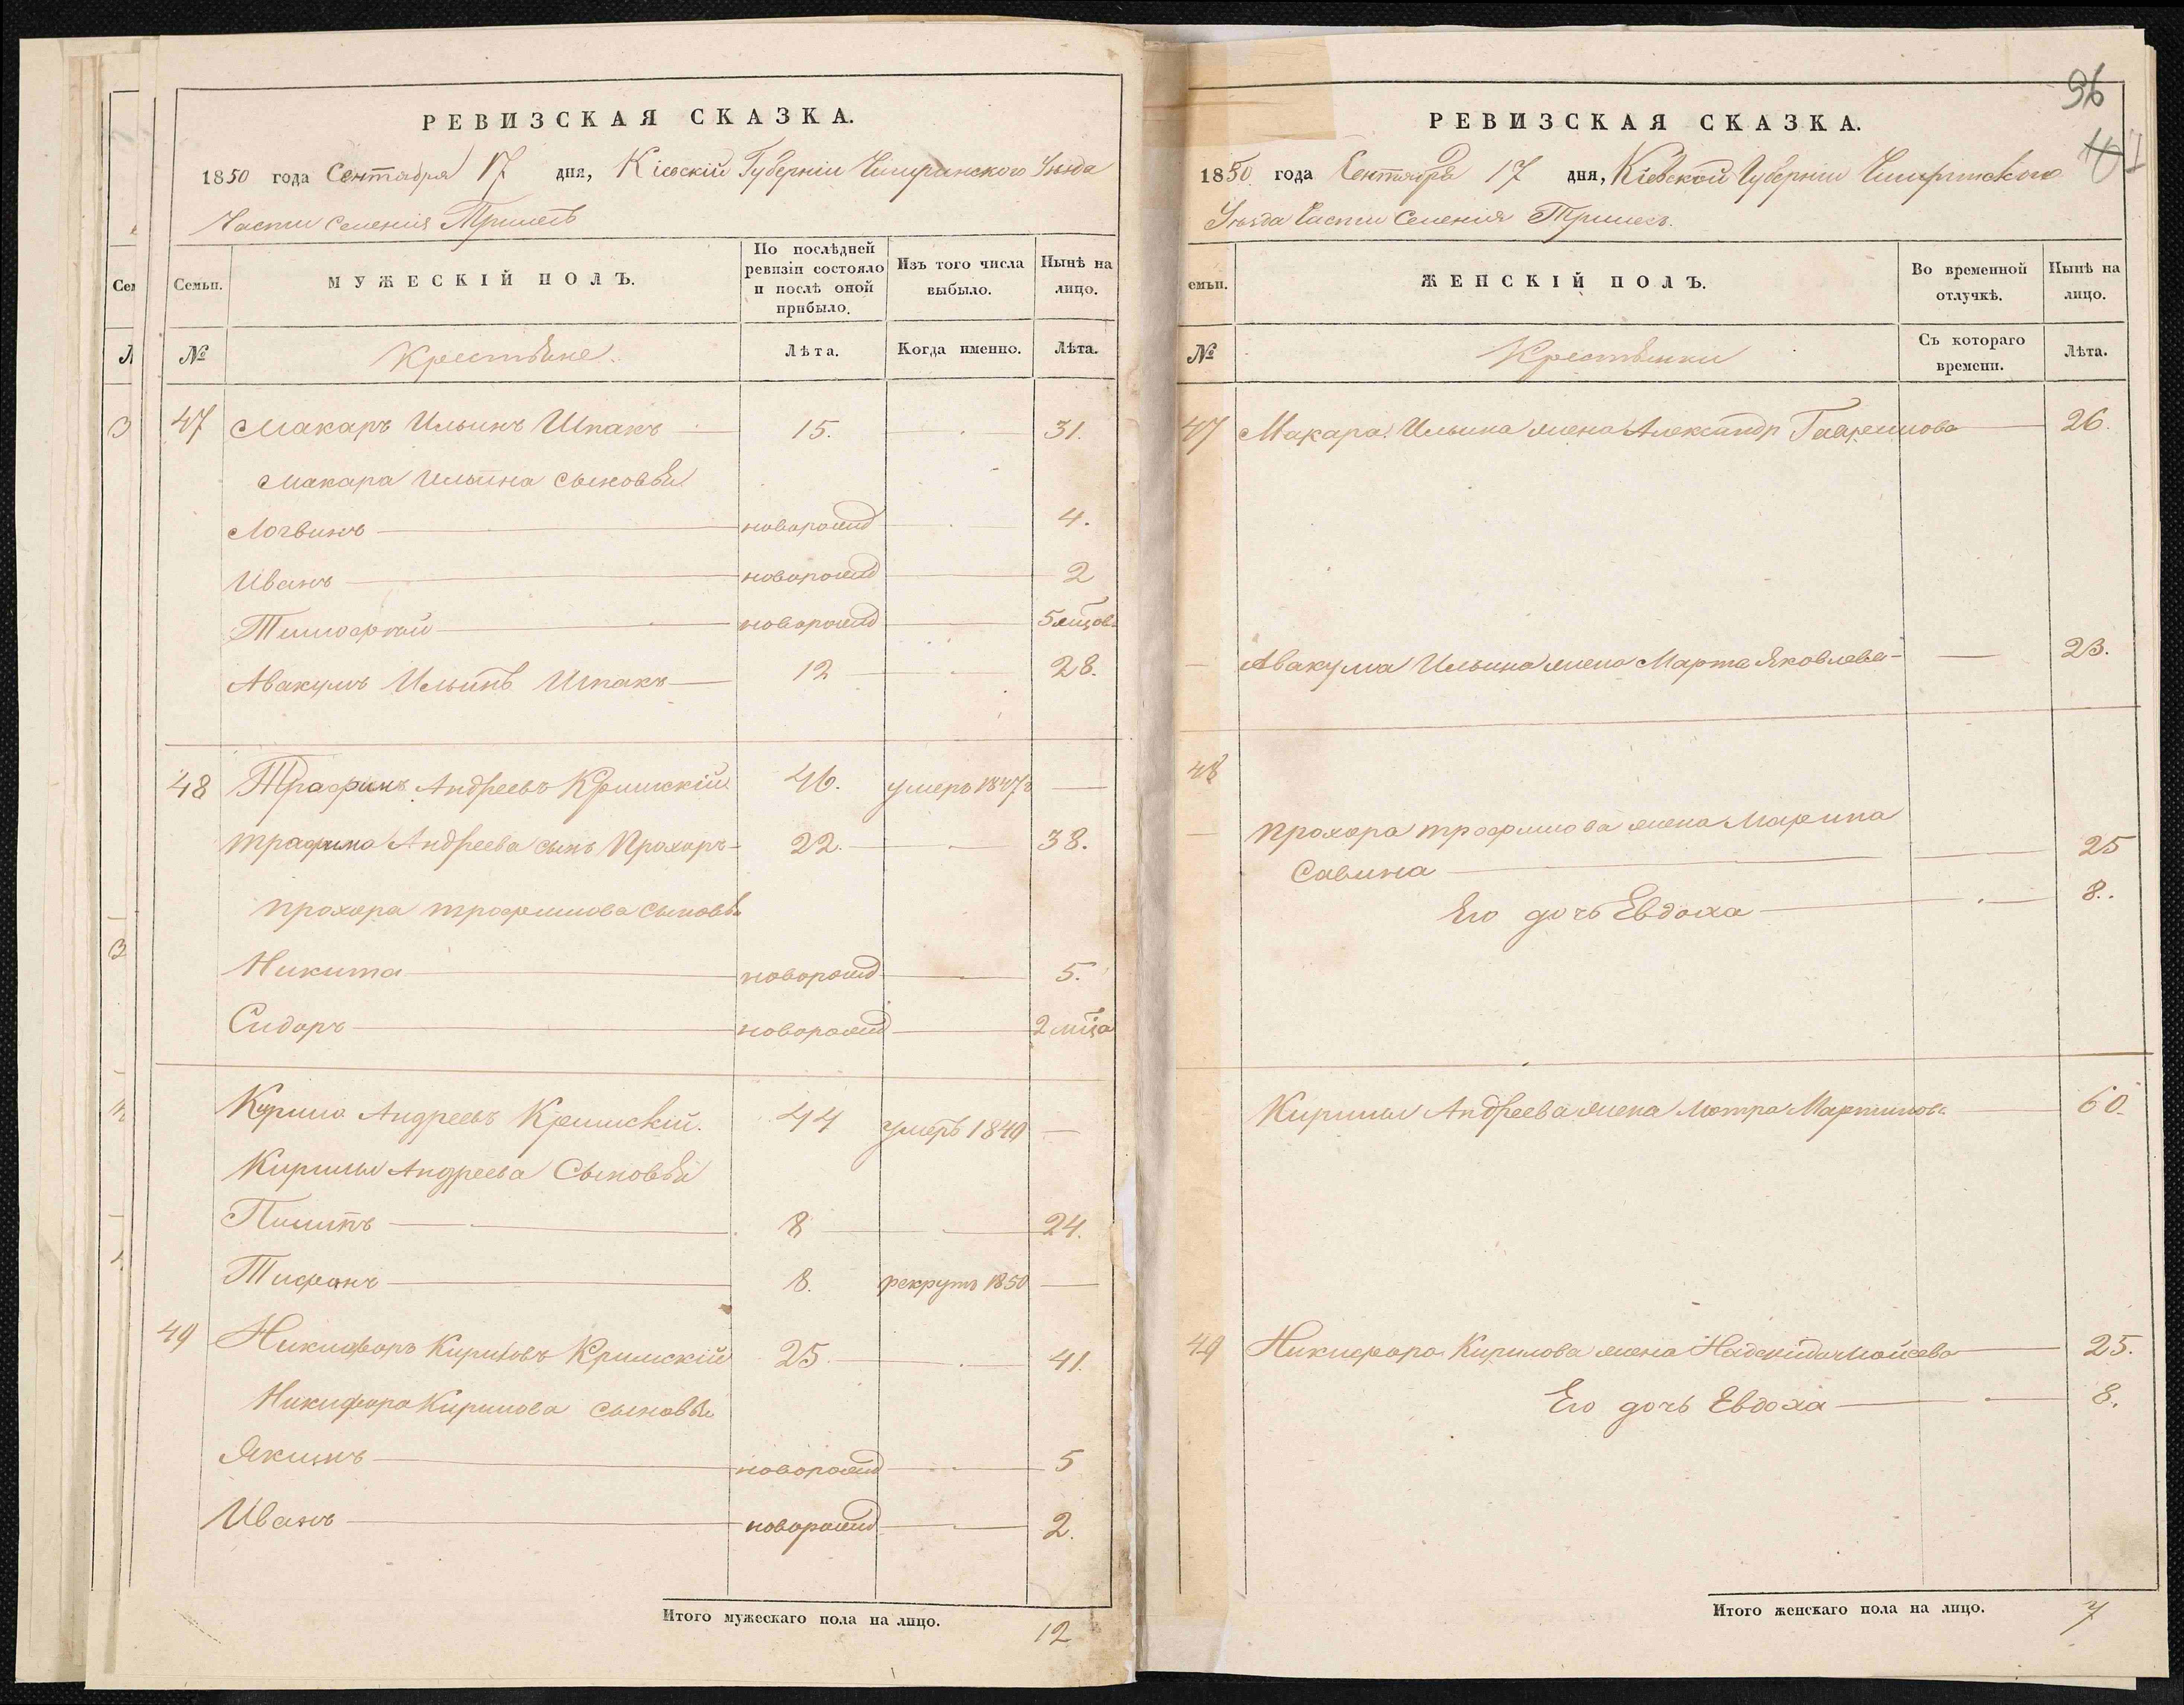 РЕВИЗСКАЯ СКАЗКА.
1850 года Сентября 17 дня, Кіевскій Губерніи Чигиринского Уѣзда
Части селенія Трилесъ
Семьи.
МУЖЕСКІЙ ПОЛЪ.
По послѣдней ревизіи состояло и послѣ оной прибыло.
Изъ того числа выбыло.
Нынѣ на лицо.
№
Крестьяне.
Лѣта.
Когда именно.
Лѣта.
47 Макаръ Ильинъ Шпакъ 15. 31.
Макара Ильина сыновья
Логвинъ новорожд 4.
Иванъ новорожд 2
Тимофей новорожд 5 мцов.
Авакумъ Ильинъ Шпакъ 12 28.
48 Трафимъ Андреевъ Кримскій 46. умеръ 1847г
трафима Андреева сынъ Прохоръ 22. 38.
прохора трофимова сыновья
Никита новорожд 5.
Сидоръ новорожд 2 мца
Кирило Андреевъ Кримскій. 44 умеръ 1849
Кирилы Андреева Сыновья
Пилипъ 8 24.
Тифанъ 8. рекрутъ 1850
49 Никифоръ Кириловъ Кримскій 25. 41.
Никифора Кирилова сыновья
Якимъ новорожд 5
Иванъ новорожд 2.
Итого мужескаго пола на лицо. 12
96
РЕВИЗСКАЯ СКАЗКА.
1850 года Сентября 17 дня, Кіевской Губерніи Чигиринского
Уѣзда Части Селенія Трилесъ.
емьи.
ЖЕНСКІЙ ПОЛЪ.
Во временной отлучкѣ.
Нынѣ на лицо.
№
Крестьянки
Съ котораго времени.
Лѣта.
47 Макара Ильина жена Александр Гаврилова 26.
Авакума Ильина жена Марта Яковлева 23.
48
прохора трофимова жена Марина
Савина 25
Его дочь Евдоха 8.
Кирилы Андреева жена Мотра Мартинова 60.
49 Никифора Кирилова жена Мойсева 25.
Его дочь Евдоха 8.
Итого женскаго пола на лицо. 7